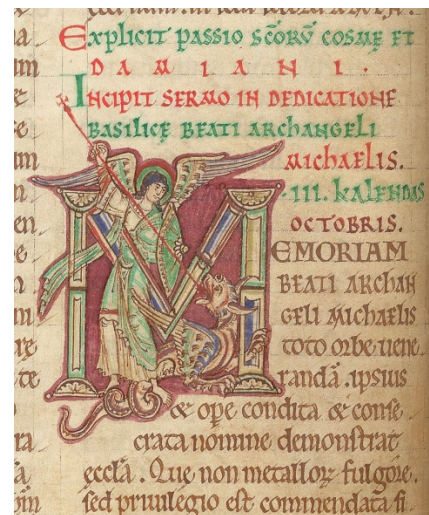 Explicit passio scōrū cosmę et
DAMIANI.
Incipit sermo in dedicatione
basilicę beati archangeli
michaelis.
.III. kalendas
octobris.
MEMORIAM
beati archan
geli michaelis
toto orbe uene
randā. ipsius
& ope condita & conse
crata nomine demonstrat
ecclā. Que non metalloꝝ fulgore.
sed priuilegio est commendata fi